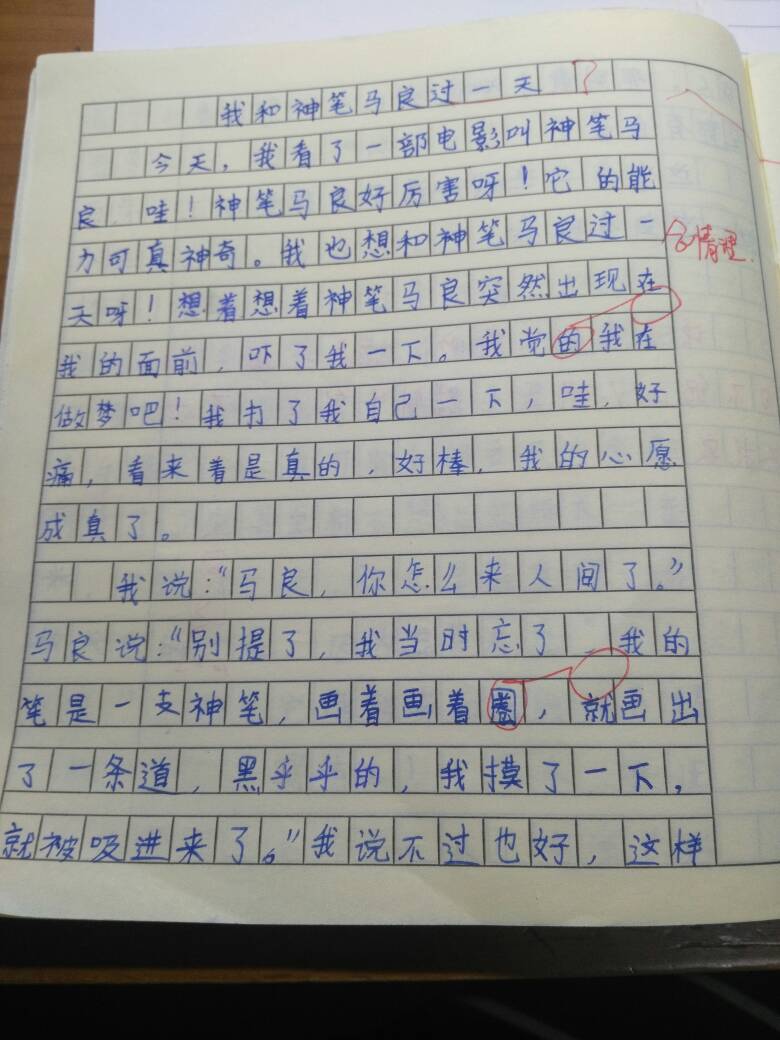 我和神笔马良过一天
今天，我看了一部电影叫神笔马
良，哇！神笔马良好厉害呀！它的能
力可真神奇。我也想和神笔马良过一
合情理.
天呀！想着想着神笔马良突然出现在
我的面前，吓了我一下。我觉的我在
做梦吧！我打了我自己一下，哇，好
痛，看来着是真的，好棒，我的心愿
成真了。
我说：“马良，你怎么来人间了。”
马良说：“别提了，我当时忘了 我的
笔是一支神笔，画着画着圈，就画出
了一条道，黑乎乎的，我摸了一下，
就被吸进来了。”我说不过也好，这样